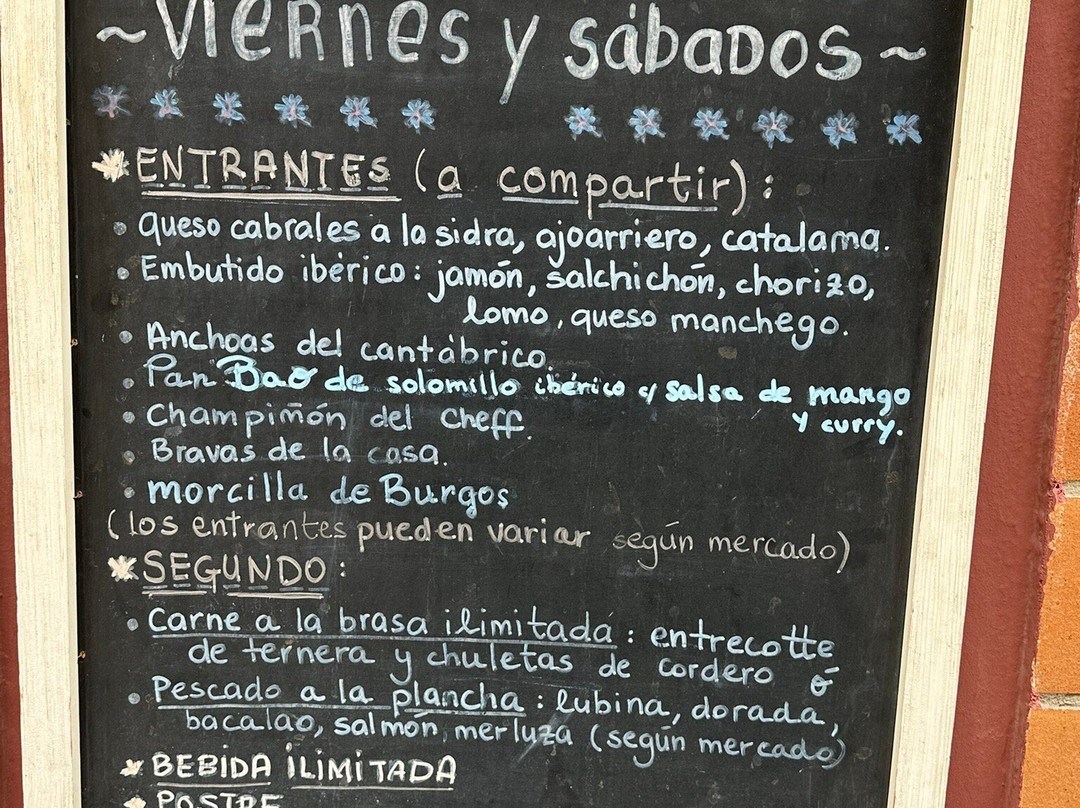 ~ Viernes y sábados ~
* ENTRANTES (a compartir):
• Queso cabrales a la sidra, ajoarriero, catalama.
• Embutido ibérico: jamón, salchichón, chorizo,
lomo, queso manchego.
• Anchoas del cantábrico.
• Pan Bao de solomillo ibérico y salsa de mango
y curry.
• Champiñón del Cheff.
• Bravas de la casa.
• morcilla de Burgos
(los entrantes pueden variar según mercado)
* SEGUNDO:
• Carne a la brasa ilimitada: entrecotte
de ternera y chuletas de cordero ó
• Pescado a la plancha: lubina, dorada,
bacalao, salmón, merluza (según mercado)
* BEBIDA ILIMITADA
* POSTRE